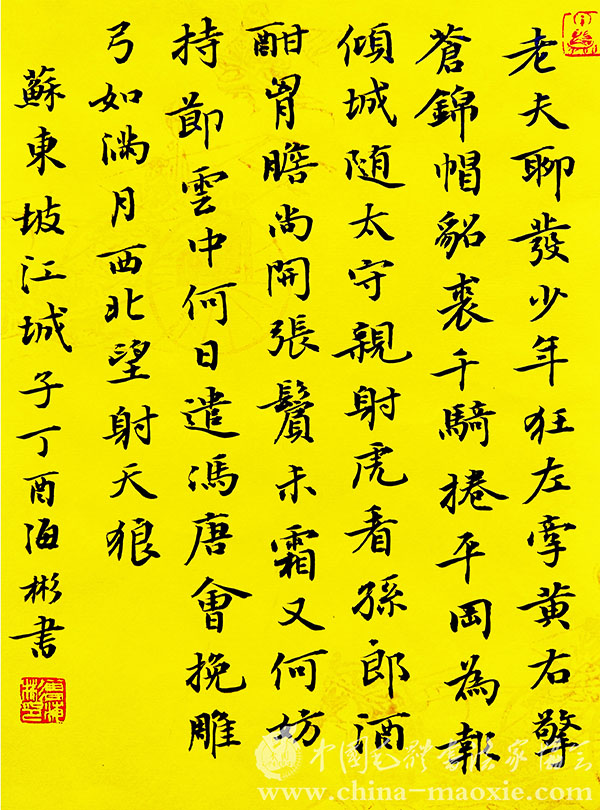 老夫聊發少年狂左牽黃右擎
蒼錦帽貂裘千騎捲平岡為報
傾城随太守親射虎看孫郎酒
酣胷膽尚開張鬢未霜又何妨
持節雲中何日遣馮唐會挽雕
弓如滿月西北望射天狼
蘇東坡江城子丁酉海彬書
www.china-maoxie.com